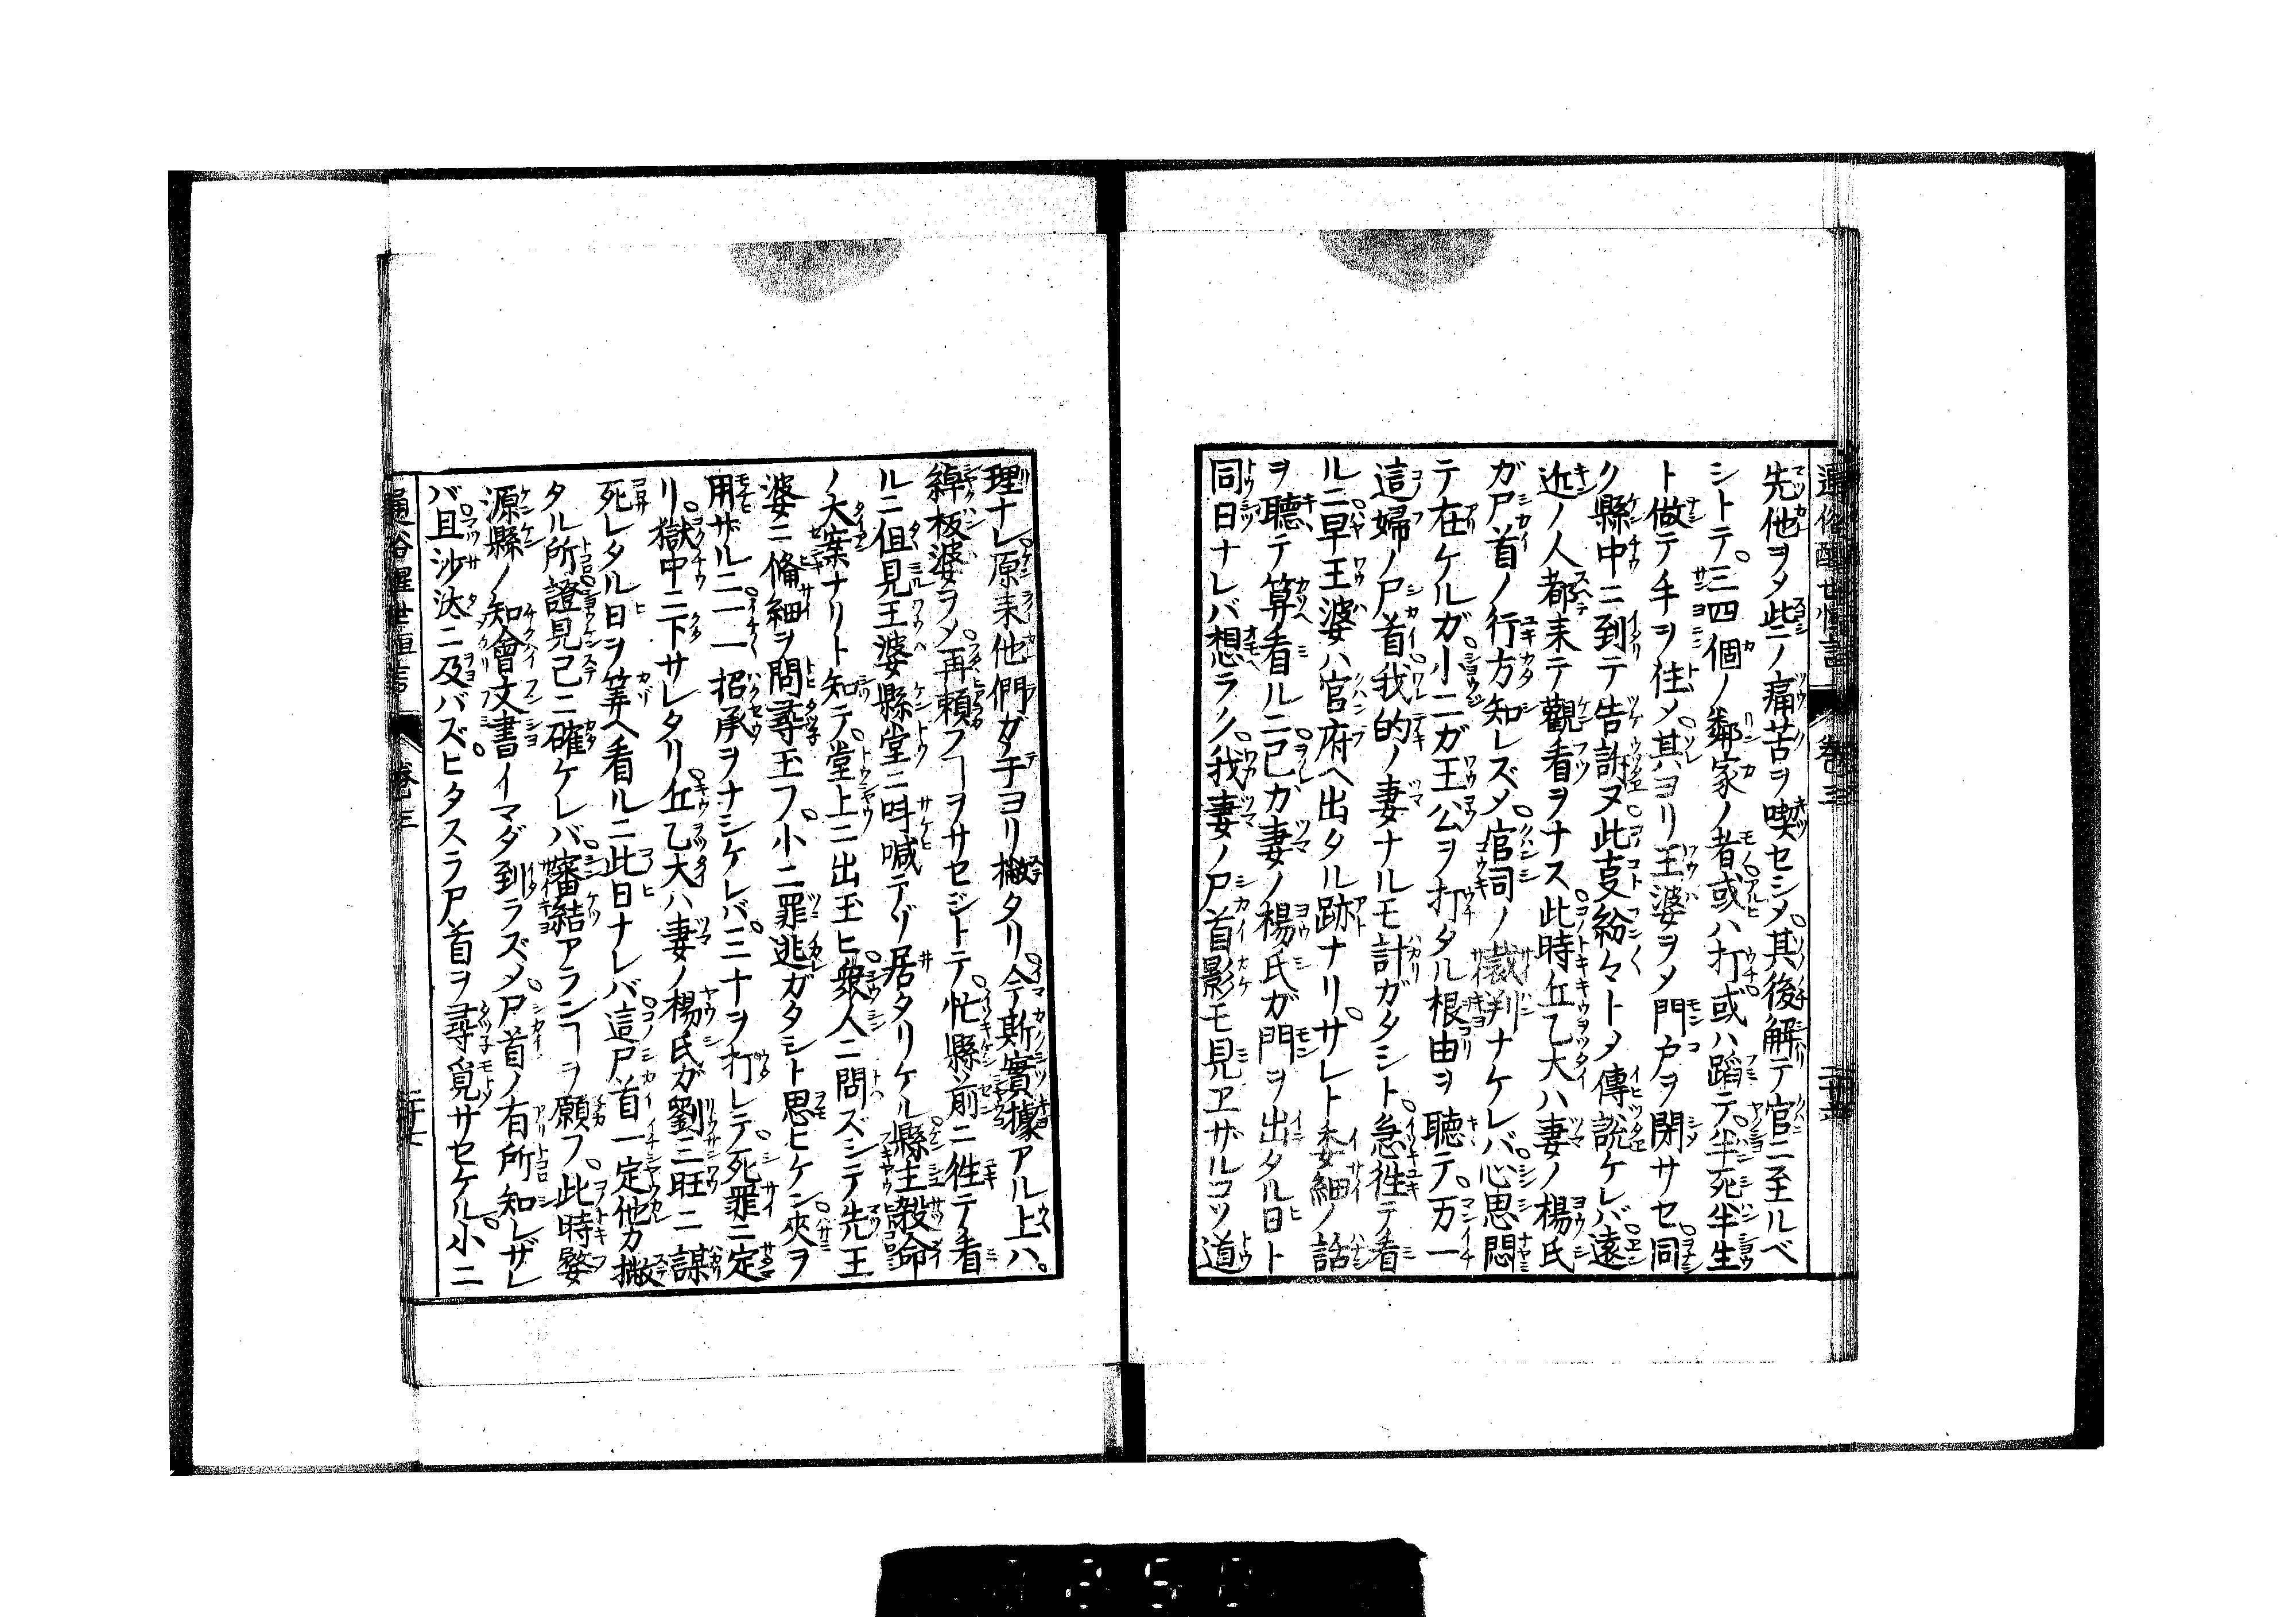 先他ヲメ些ノ痛苦ヲ喫セシメ其後解テ官ニ至ルベ
シトテ三四個ノ鄰家ノ者或ハ打或ハ蹈テ半死半生
ト做テ手ヲ住メ其ヨリ王婆ヲメ門戸ヲ閉サセ同
ク縣中ニ到テ告訴ヌ此叓紛々トメ傳說ケレバ遠
近ノ人都耒テ觀看ヲナス此時丘乙大ハ妻ノ楊氏
ガ尸首ノ行方知レズメ官司ノ裁判ナケレバ心思悶
テ在ケルガ小二ガ王公ヲ打タル根由ヲ聽テ万一
這婦ノ尸首我的ノ妻ナルモ計ガタシト急徃テ看
ルニ早王婆ハ官府ヘ出タル跡ナリサレト委細ノ話
ヲ聽テ算看ルニ己ガ妻ノ楊氏ガ門ヲ出タル日ト
同日ナレバ想ラク我妻ノ尸首影モ見ヱザルコソ道
理ナレ原耒他們ガ手ヨリ撇タリ今斯實據アル上ハ
綽板婆ヲメ再賴フヿヲサセジトテ忙縣前ニ徃テ看
ルニ伹見王婆縣堂ニ呌喊テゾ居タリケル縣主殺命
ノ大案ナリト知テ堂上ニ出玉ヒ衆人ニ問ズシテ先王
婆ニ備細ヲ問尋玉フ小二罪逃ガタシト思ヒケン夾ヲ
用ザルニ一一招承ヲナシケレバ三十ヲ打レテ死罪ニ定
リ獄中ニ下サレタリ丘乙大ハ妻ノ楊氏ガ劉三旺ニ謀
死レタル日ヲ筭ヘ看ルニ此日ナレバ這尸首一定他カ撇
タル所證見己ニ確ケレバ審結アランヿヲ願フ此時婺
源縣ノ知會文書イマダ到ラズメ尸首ノ有所知レザレ
バ且沙汰ニ及バズヒタスラ尸首ヲ尋覓サセケル小二